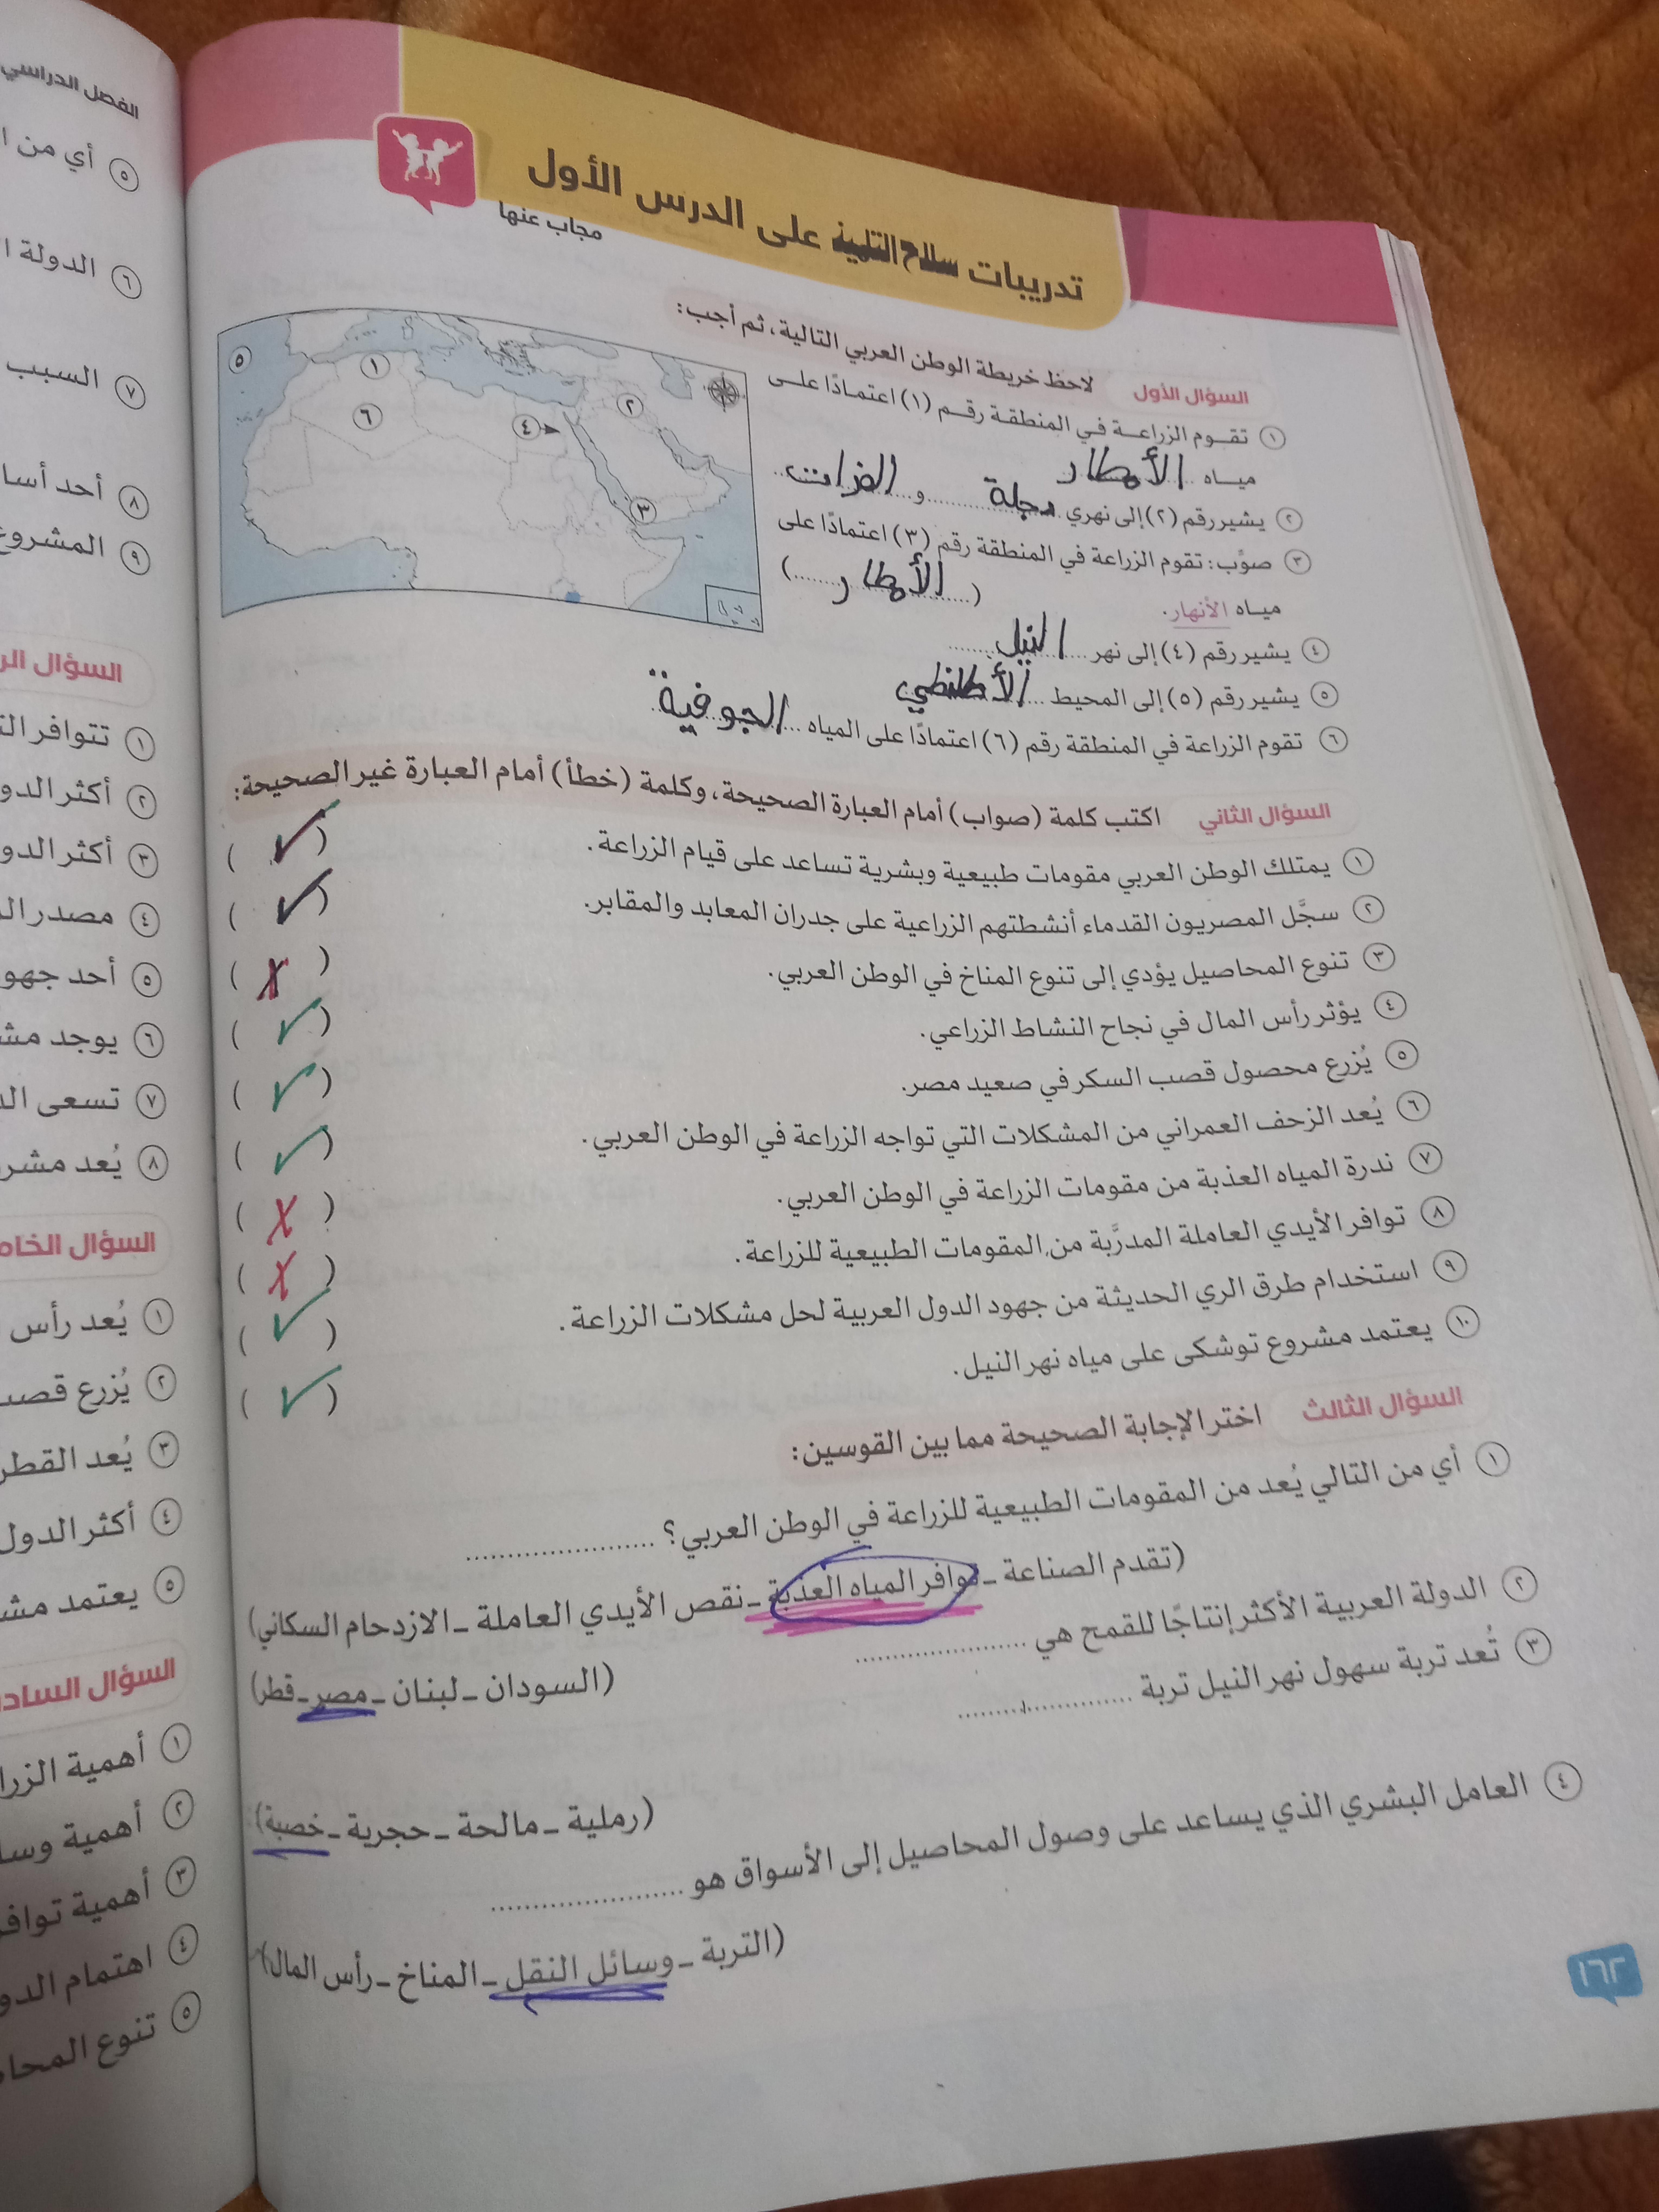 تدريبات سلاح التلميذ على الدرس الأول
مجاب عنها
السؤال الأول لاحظ خريطة الوطن العربي التالية، ثم أجب:
١ تقوم الزراعة في المنطقة رقم (١) اعتمادًا على
مياه الأمطار
٢ يشير رقم (٢) إلى نهري دجلة و الفرات
٣ صوِّب: تقوم الزراعة في المنطقة رقم (٣) اعتمادًا على
مياه الأنهار. (الأمطار)
٤ يشير رقم (٤) إلى نهر النيل
٥ يشير رقم (٥) إلى المحيط الأطلنطي
٦ تقوم الزراعة في المنطقة رقم (٦) اعتمادًا على المياه الجوفية
٥ ١ ٦ ٤ ٢ ٣
السؤال الثاني اكتب كلمة (صواب) أمام العبارة الصحيحة، وكلمة (خطأ) أمام العبارة غير الصحيحة:
١ يمتلك الوطن العربي مقومات طبيعية وبشرية تساعد على قيام الزراعة. (✓)
٢ سجَّل المصريون القدماء أنشطتهم الزراعية على جدران المعابد والمقابر. (✓)
٣ تنوع المحاصيل يؤدي إلى تنوع المناخ في الوطن العربي. (X)
٤ يؤثر رأس المال في نجاح النشاط الزراعي. (✓)
٥ يُزرع محصول قصب السكر في صعيد مصر. (✓)
٦ يُعد الزحف العمراني من المشكلات التي تواجه الزراعة في الوطن العربي. (✓)
٧ ندرة المياه العذبة من مقومات الزراعة في الوطن العربي. (X)
٨ توافر الأيدي العاملة المدرَّبة من المقومات الطبيعية للزراعة. (X)
٩ استخدام طرق الري الحديثة من جهود الدول العربية لحل مشكلات الزراعة. (✓)
١٠ يعتمد مشروع توشكى على مياه نهر النيل. (✓)
السؤال الثالث اختر الإجابة الصحيحة مما بين القوسين:
١ أي من التالي يُعد من المقومات الطبيعية للزراعة في الوطن العربي؟ ......................
(تقدم الصناعة – توافر المياه العذبة – نقص الأيدي العاملة – الازدحام السكاني)
٢ الدولة العربية الأكثر إنتاجًا للقمح هي ......................
(السودان – لبنان – مصر – قطر)
٣ تُعد تربة سهول نهر النيل تربة ......................
(رملية – مالحة – حجرية – خصبة)
٤ العامل البشري الذي يساعد على وصول المحاصيل إلى الأسواق هو ......................
(التربة – وسائل النقل – المناخ – رأس المال)
١٦٢
الفصل الدراسي
٥ أي من
٦ الدولة
٧ السبب
٨ أحد
٩ المشروع
السؤال
١ تتوافر
٢ أكثر
٣ أكثر
٤ مصدر
٥ أحد
٦ يوجد
٧ تسعى
٨ يُعد
السؤال
١ يُعد رأس
٢ يُزرع
٣ يُعد
٤ أكثر الدول
٥ يعتمد
السؤال
١ أهمية
٢ أهمية
٣ أهمية
٤ اهتمام
٥ تنوع